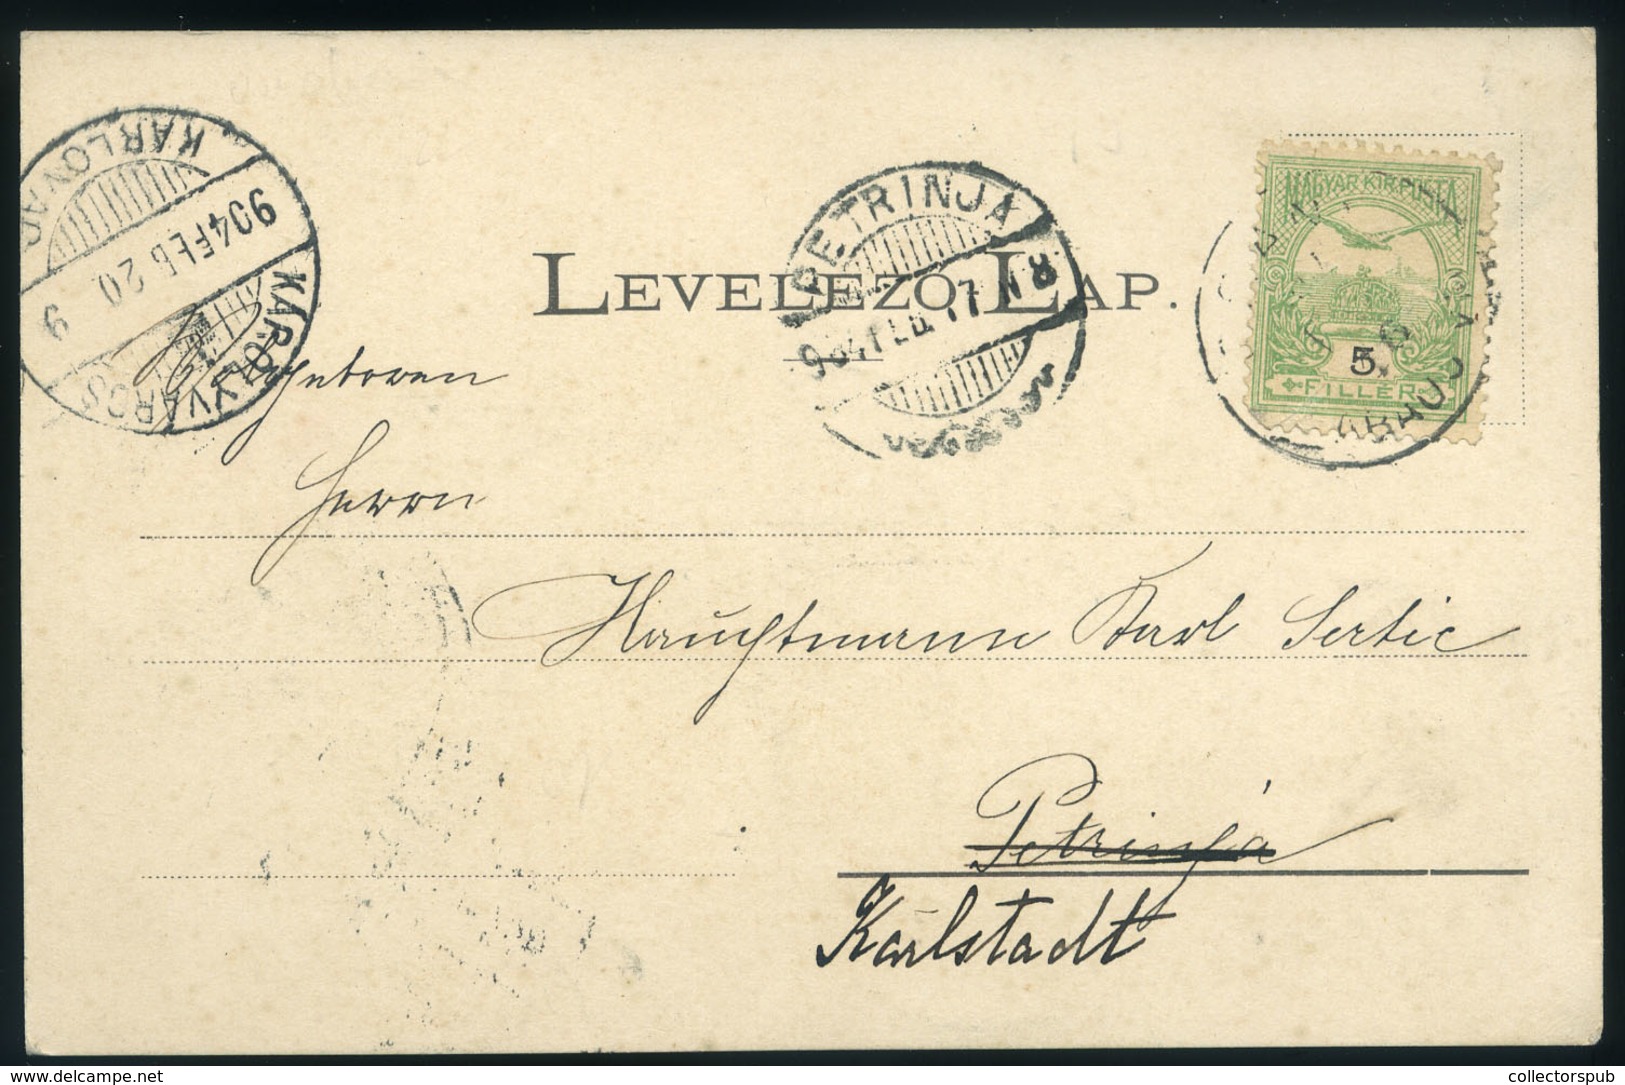 KARLOVAC
904 FEB 20
9
KÁROLYVÁROS
PETRINJA
904 FEB 17 N 8
LEVELEZŐ-LAP.
MAGYAR KIR. POSTA
5
FILLÉR
Herrn
Hauptmann Karl Sertic
Petrinja
Karlstadt
collectorspub